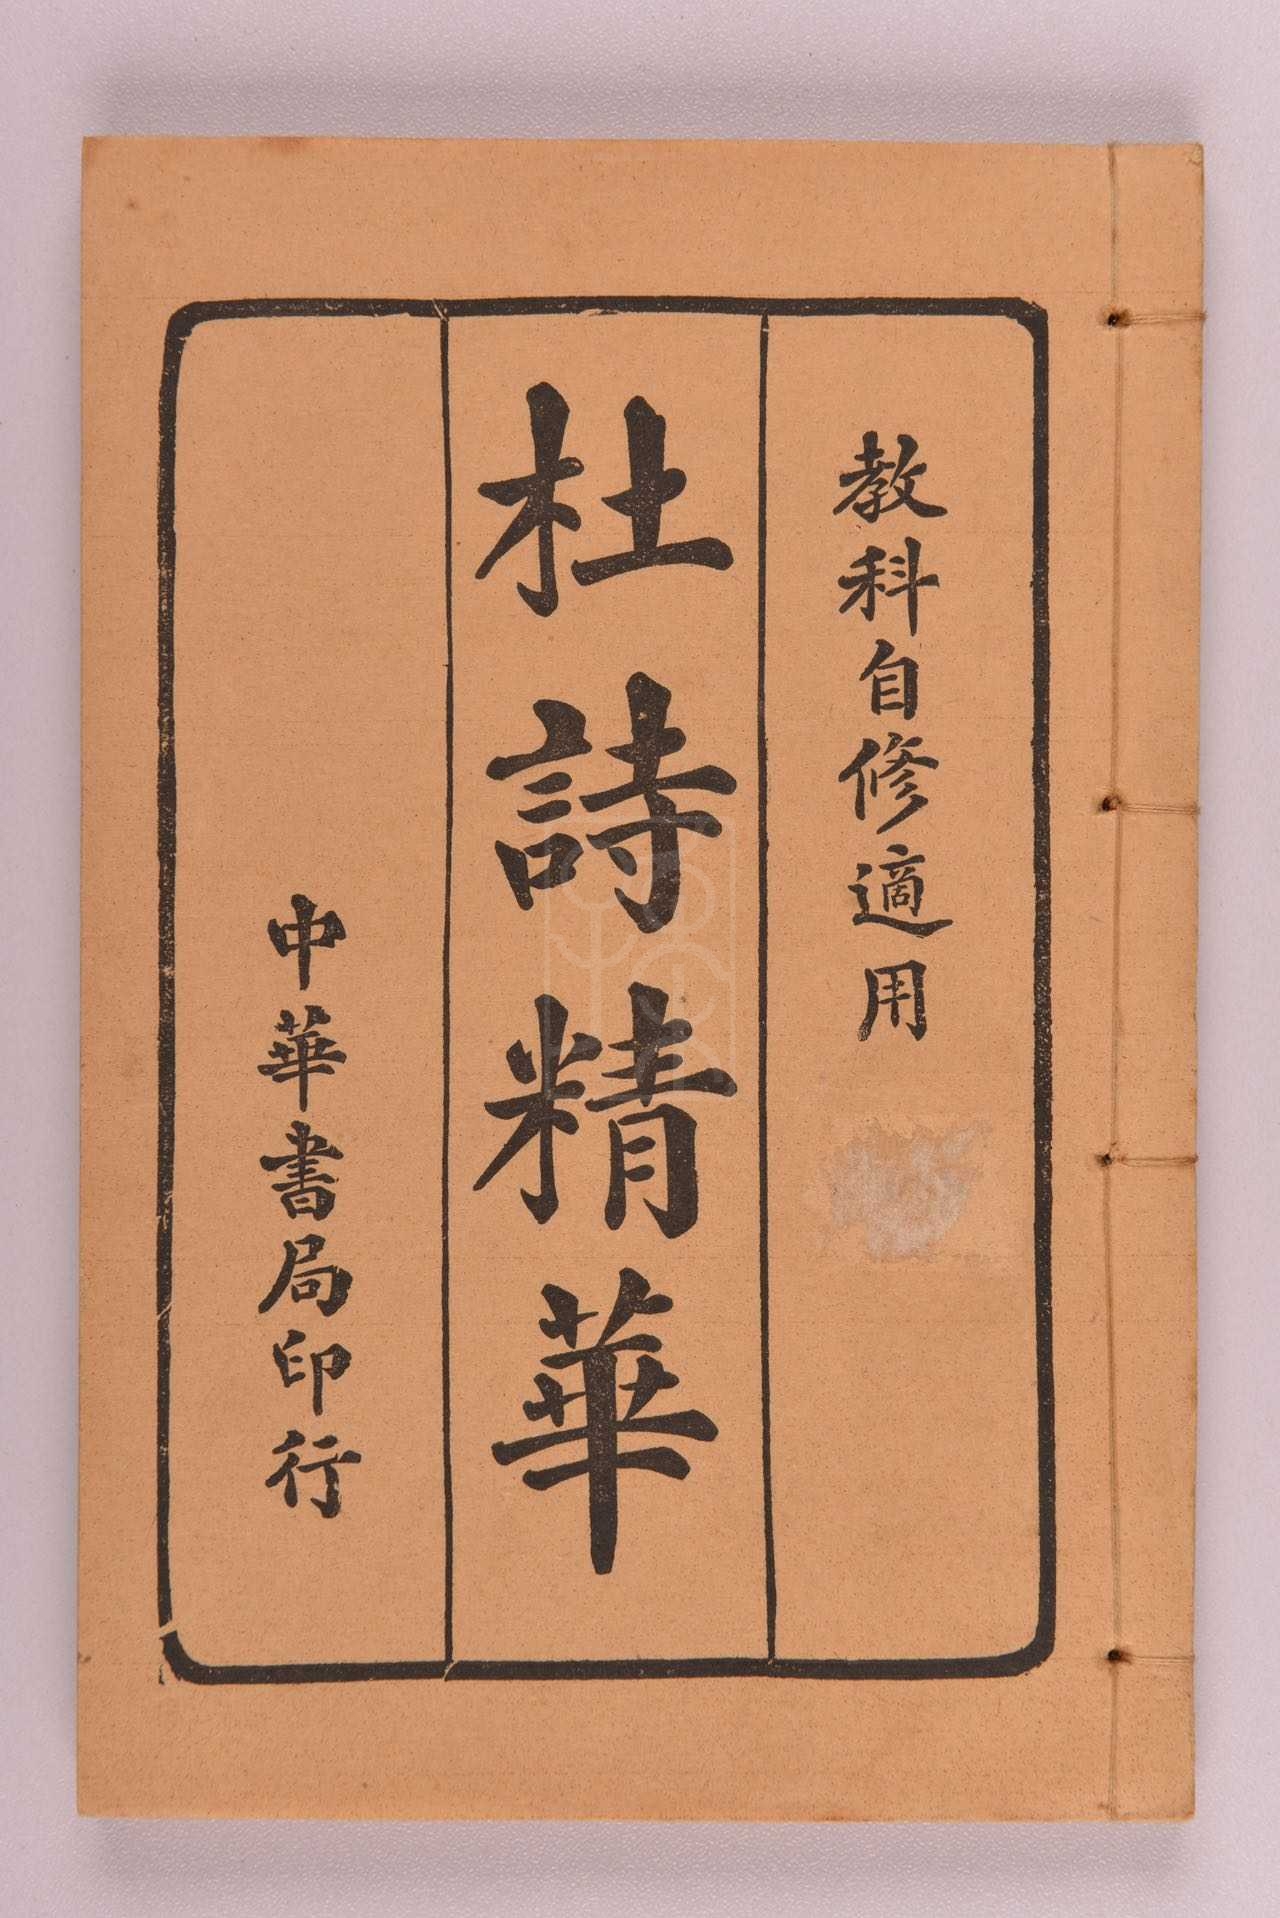 教科自修適用
杜詩精華
中華書局印行